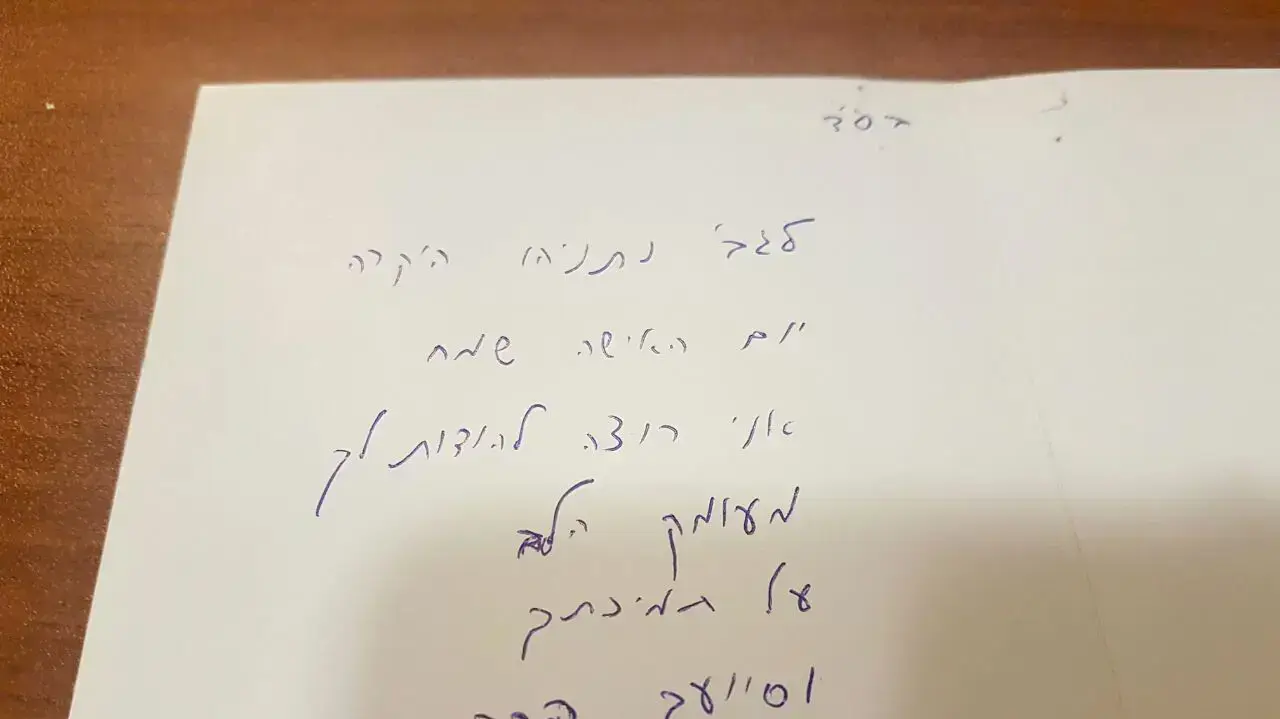 בס"ד
לגב' נתניהו היקרה
יום האישה שמח
אני רוצה להודות לך
מעומק הלב
על תמיכתך
וסיועך